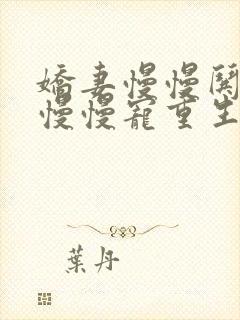 嬌妻慢慢鬥
慢慢寵重生
葉丹